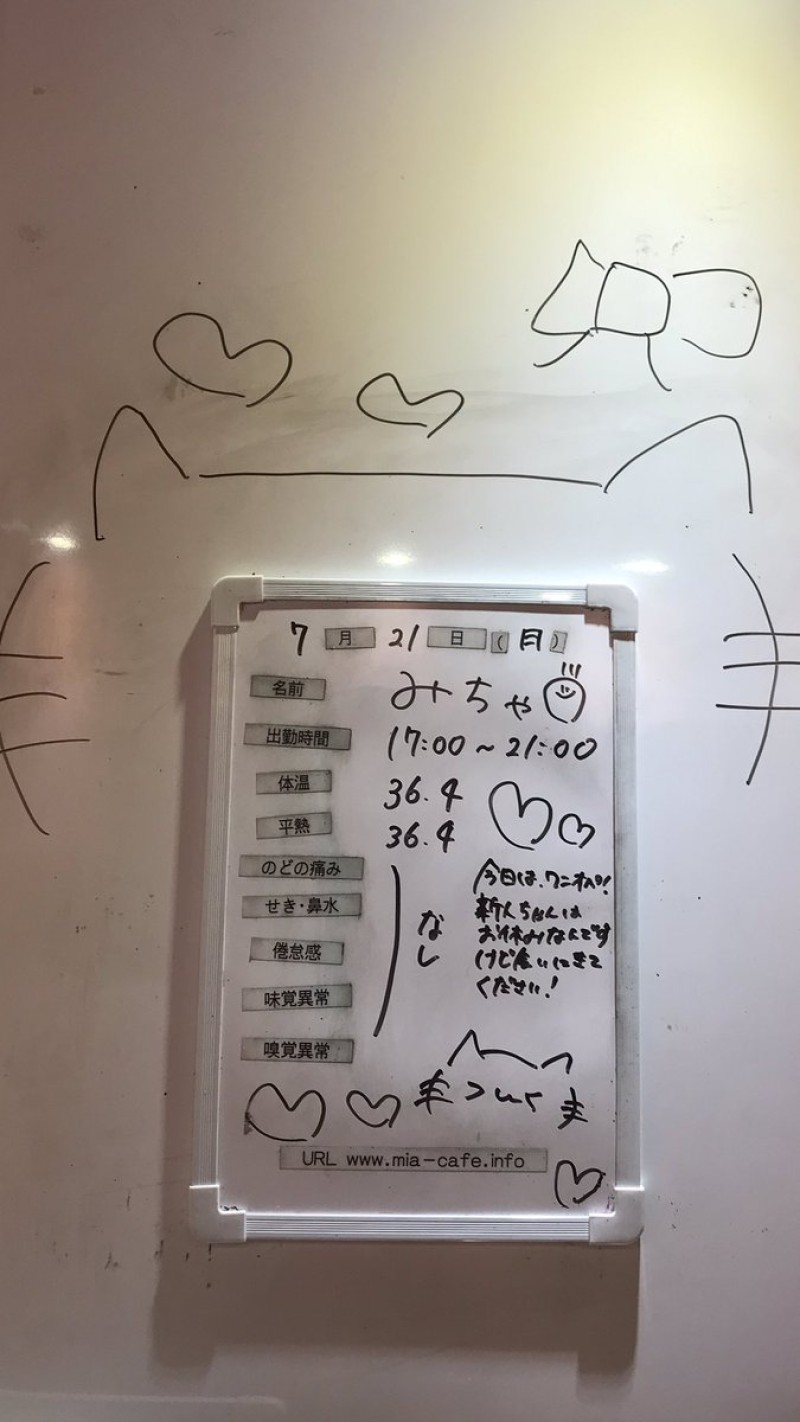 7月21日(月)
名前 みちゃ
出勤時間 17:00～21:00
体温 36.4
平熱 36.4
のどの痛み
せき・鼻水
倦怠感
味覚異常
嗅覚異常
なし
今日は、ワンオペ!
新人ちゃんは
お休みなんです
けど会いにきて
ください!
URL www.mia-cafe.info